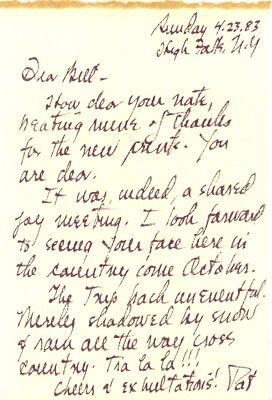 Sunday 4.23.83
High Falls, N.Y
Dear Bill -
How dear your note,
beating mine of thanks
for the new prints. You
are dear.
It was, indeed, a shared
joy meeting. I look forward
to seeing your face here in
the country come October.
The Trip back uneventful.
Merely shadowed by snow
& rain all the way cross
country. Tra la la!!!
Cheers & exhultations! Pat